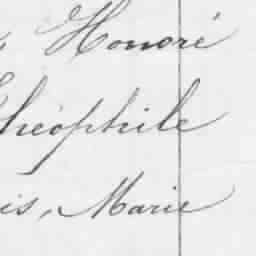 Honoré
Théophile
is, Marie